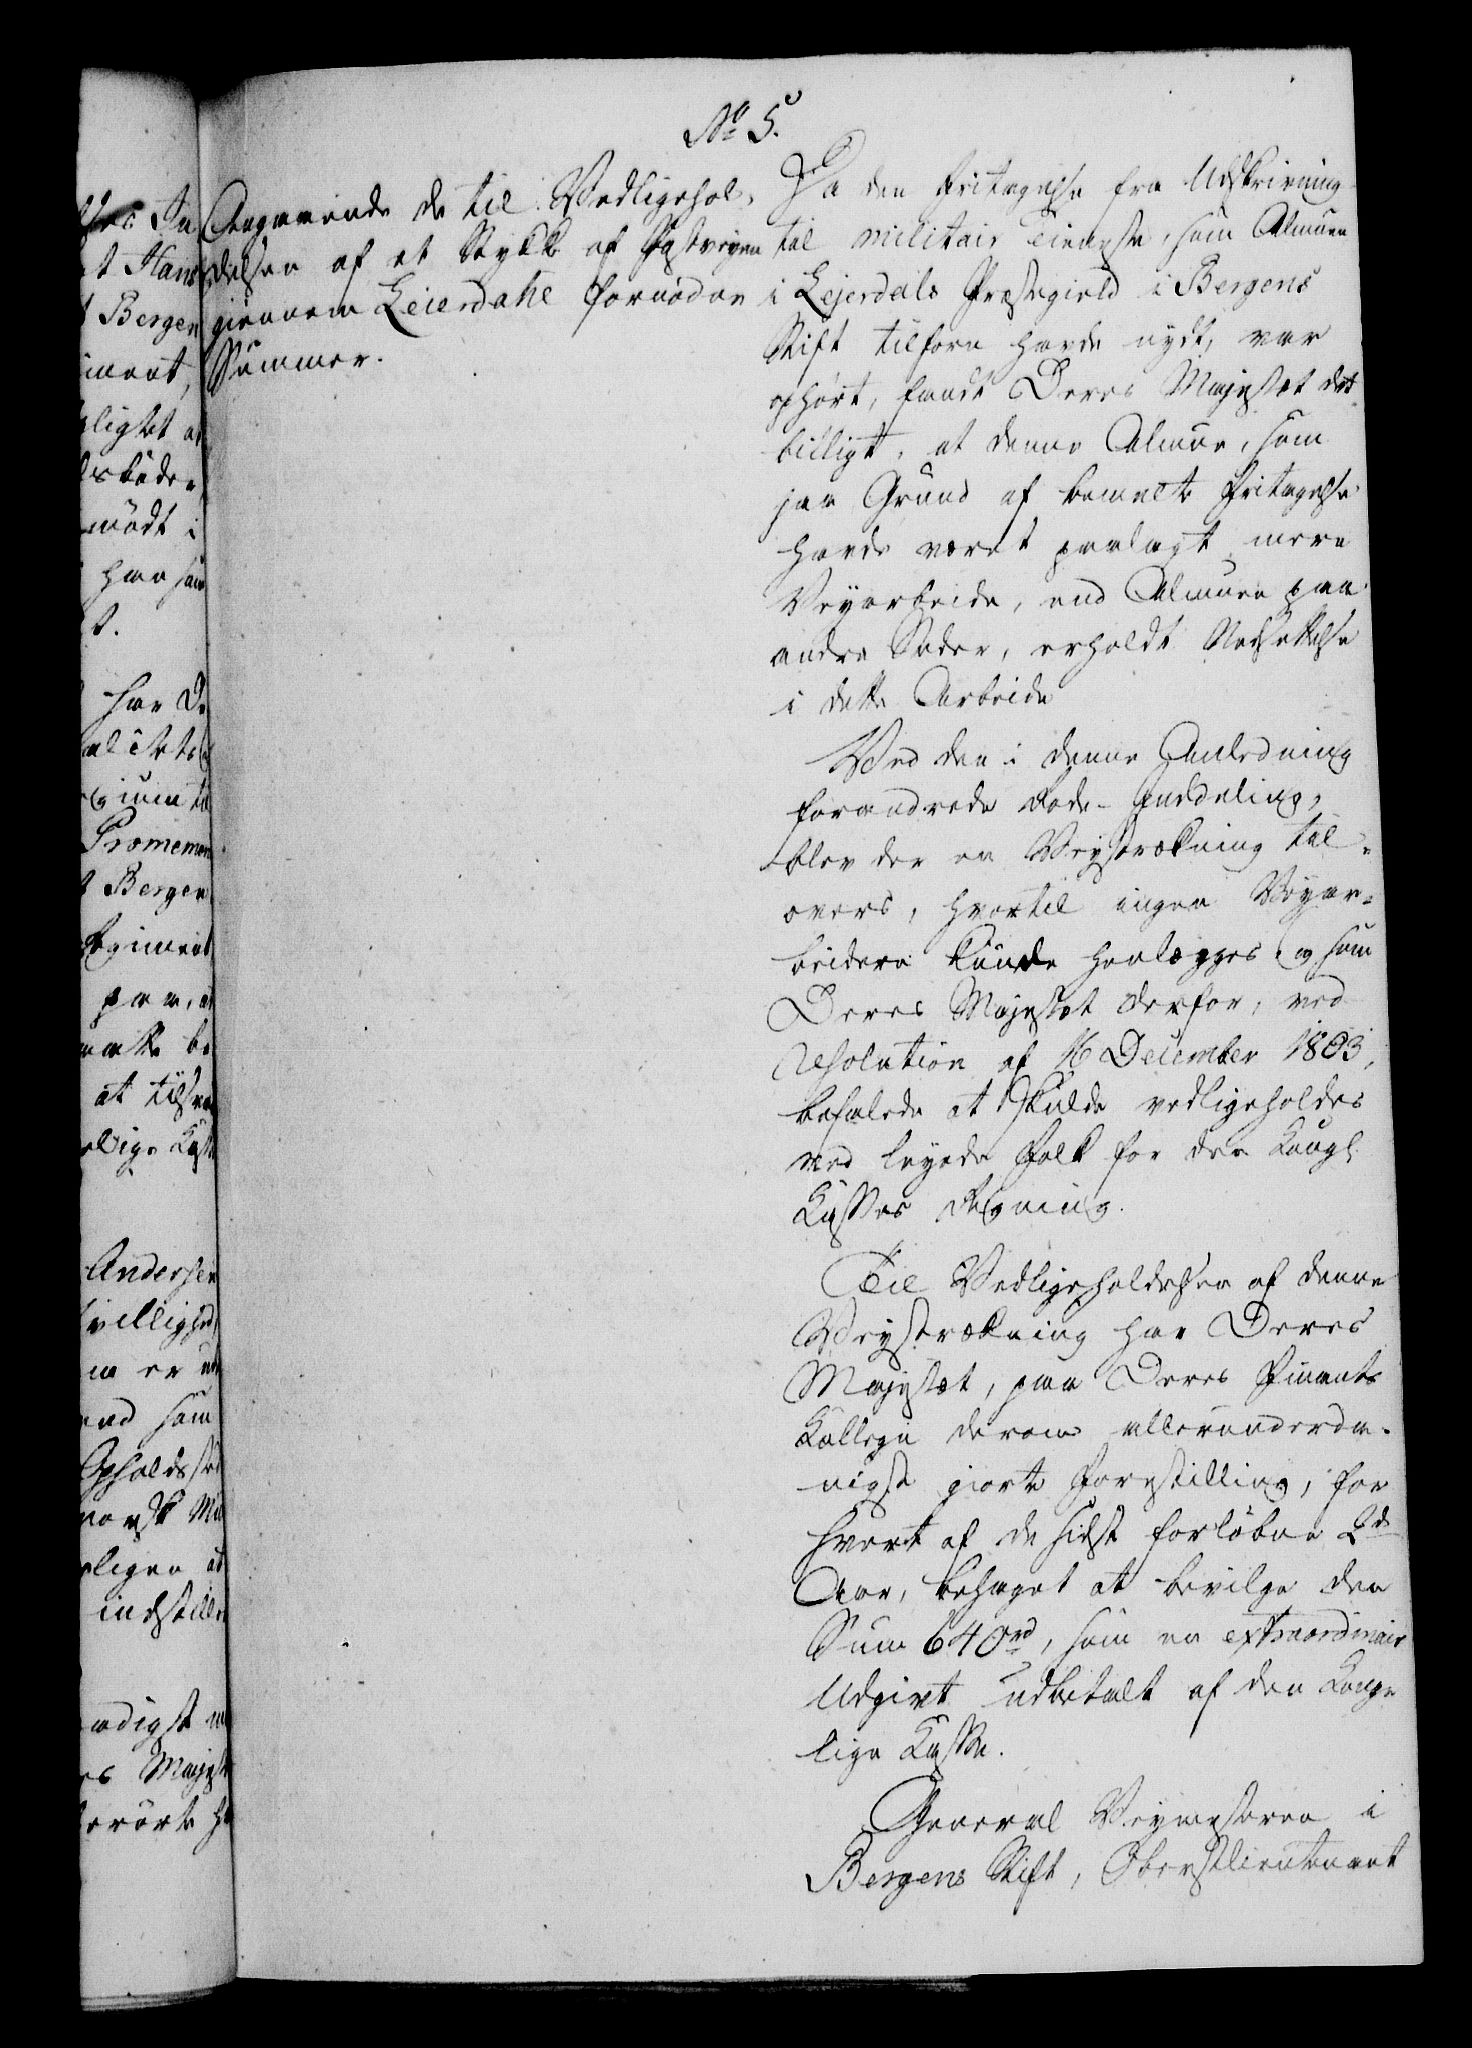 No 5.
Angaaende de til Vedligehol-
delsen af et Stykke af Postveyen
giennem Leierdahl fornødne
Summer.
Da den Fritagelse fra Udskrivning
til militair Tieneste, som Almuen
i Lejerdals Præstegield i Bergens
Stift tilforn havde nydt, var
ophørt, fandt Deres Majestæt det
billigt, at denne Almue, som
paa Grund af bemelte Fritagelse
havde været paalagt mere
Veyarbeide, end Almuen paa
andre Steder, erholdt Nedsættelse
i dette Arbeide
Ved den i denne Anledning
forandrede Rode-Inddeling,
blev der en Veystrækning til-
overs, hvortil ingen Veyar-
beidere kunde henlægges og som
Deres Majestæt derfor, ved
Resolution af 16 December 1803,
befalede at skulde vedligeholdes
ved leyede Folk for den Kongl.
Kasses Regning.
Til Vedligeholdelsen af denne
Veystrækning har Deres
Majestæt, paa Deres Finants
Kollegii derom allerunderda-
nigst giorte Forestilling, for
hvert af de sidst forløbne 2de
Aar, behaget at bevilge den
Sum 640 rd, som en extraordinair
Udgivt udbetalt af den Konge
lige Kasse.
General Veymesteren i
Bergens Stift, Oberstlieutenant